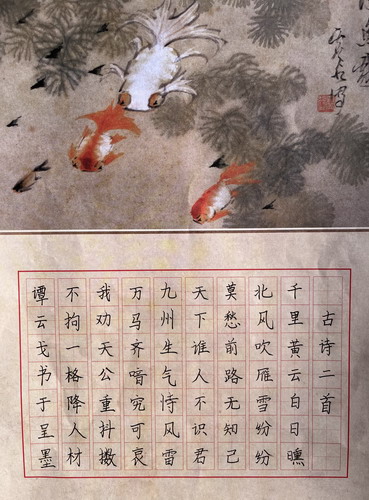 古诗二首
千里黄云白日曛
北风吹雁雪纷纷
莫愁前路无知己
天下谁人不识君
九州生气恃风雷
万马齐喑究可哀
我劝天公重抖擞
不拘一格降人材
谭云戈书于呈墨